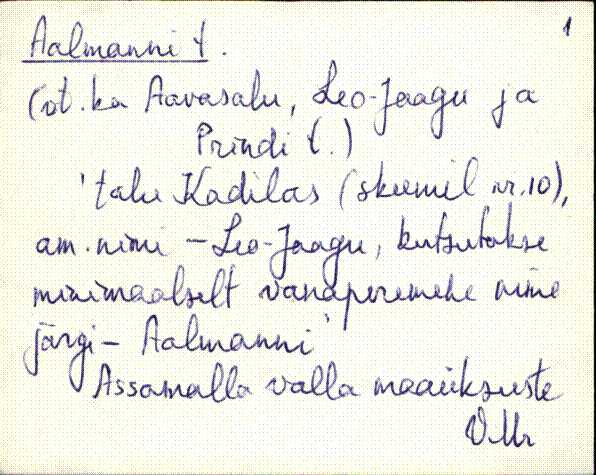 1
Aalmanni t.
(vt. ka Aavasalu, Leo-Jaagu ja
Prindi t.)
'talu Kadilas (skeemil nr. 10),
am. nimi - Leo-Jaagu, kutsutakse
minimaalselt vanaperemehe nime
järgi - Aalmanni'
Assamalla valla maaüksuste
VMr